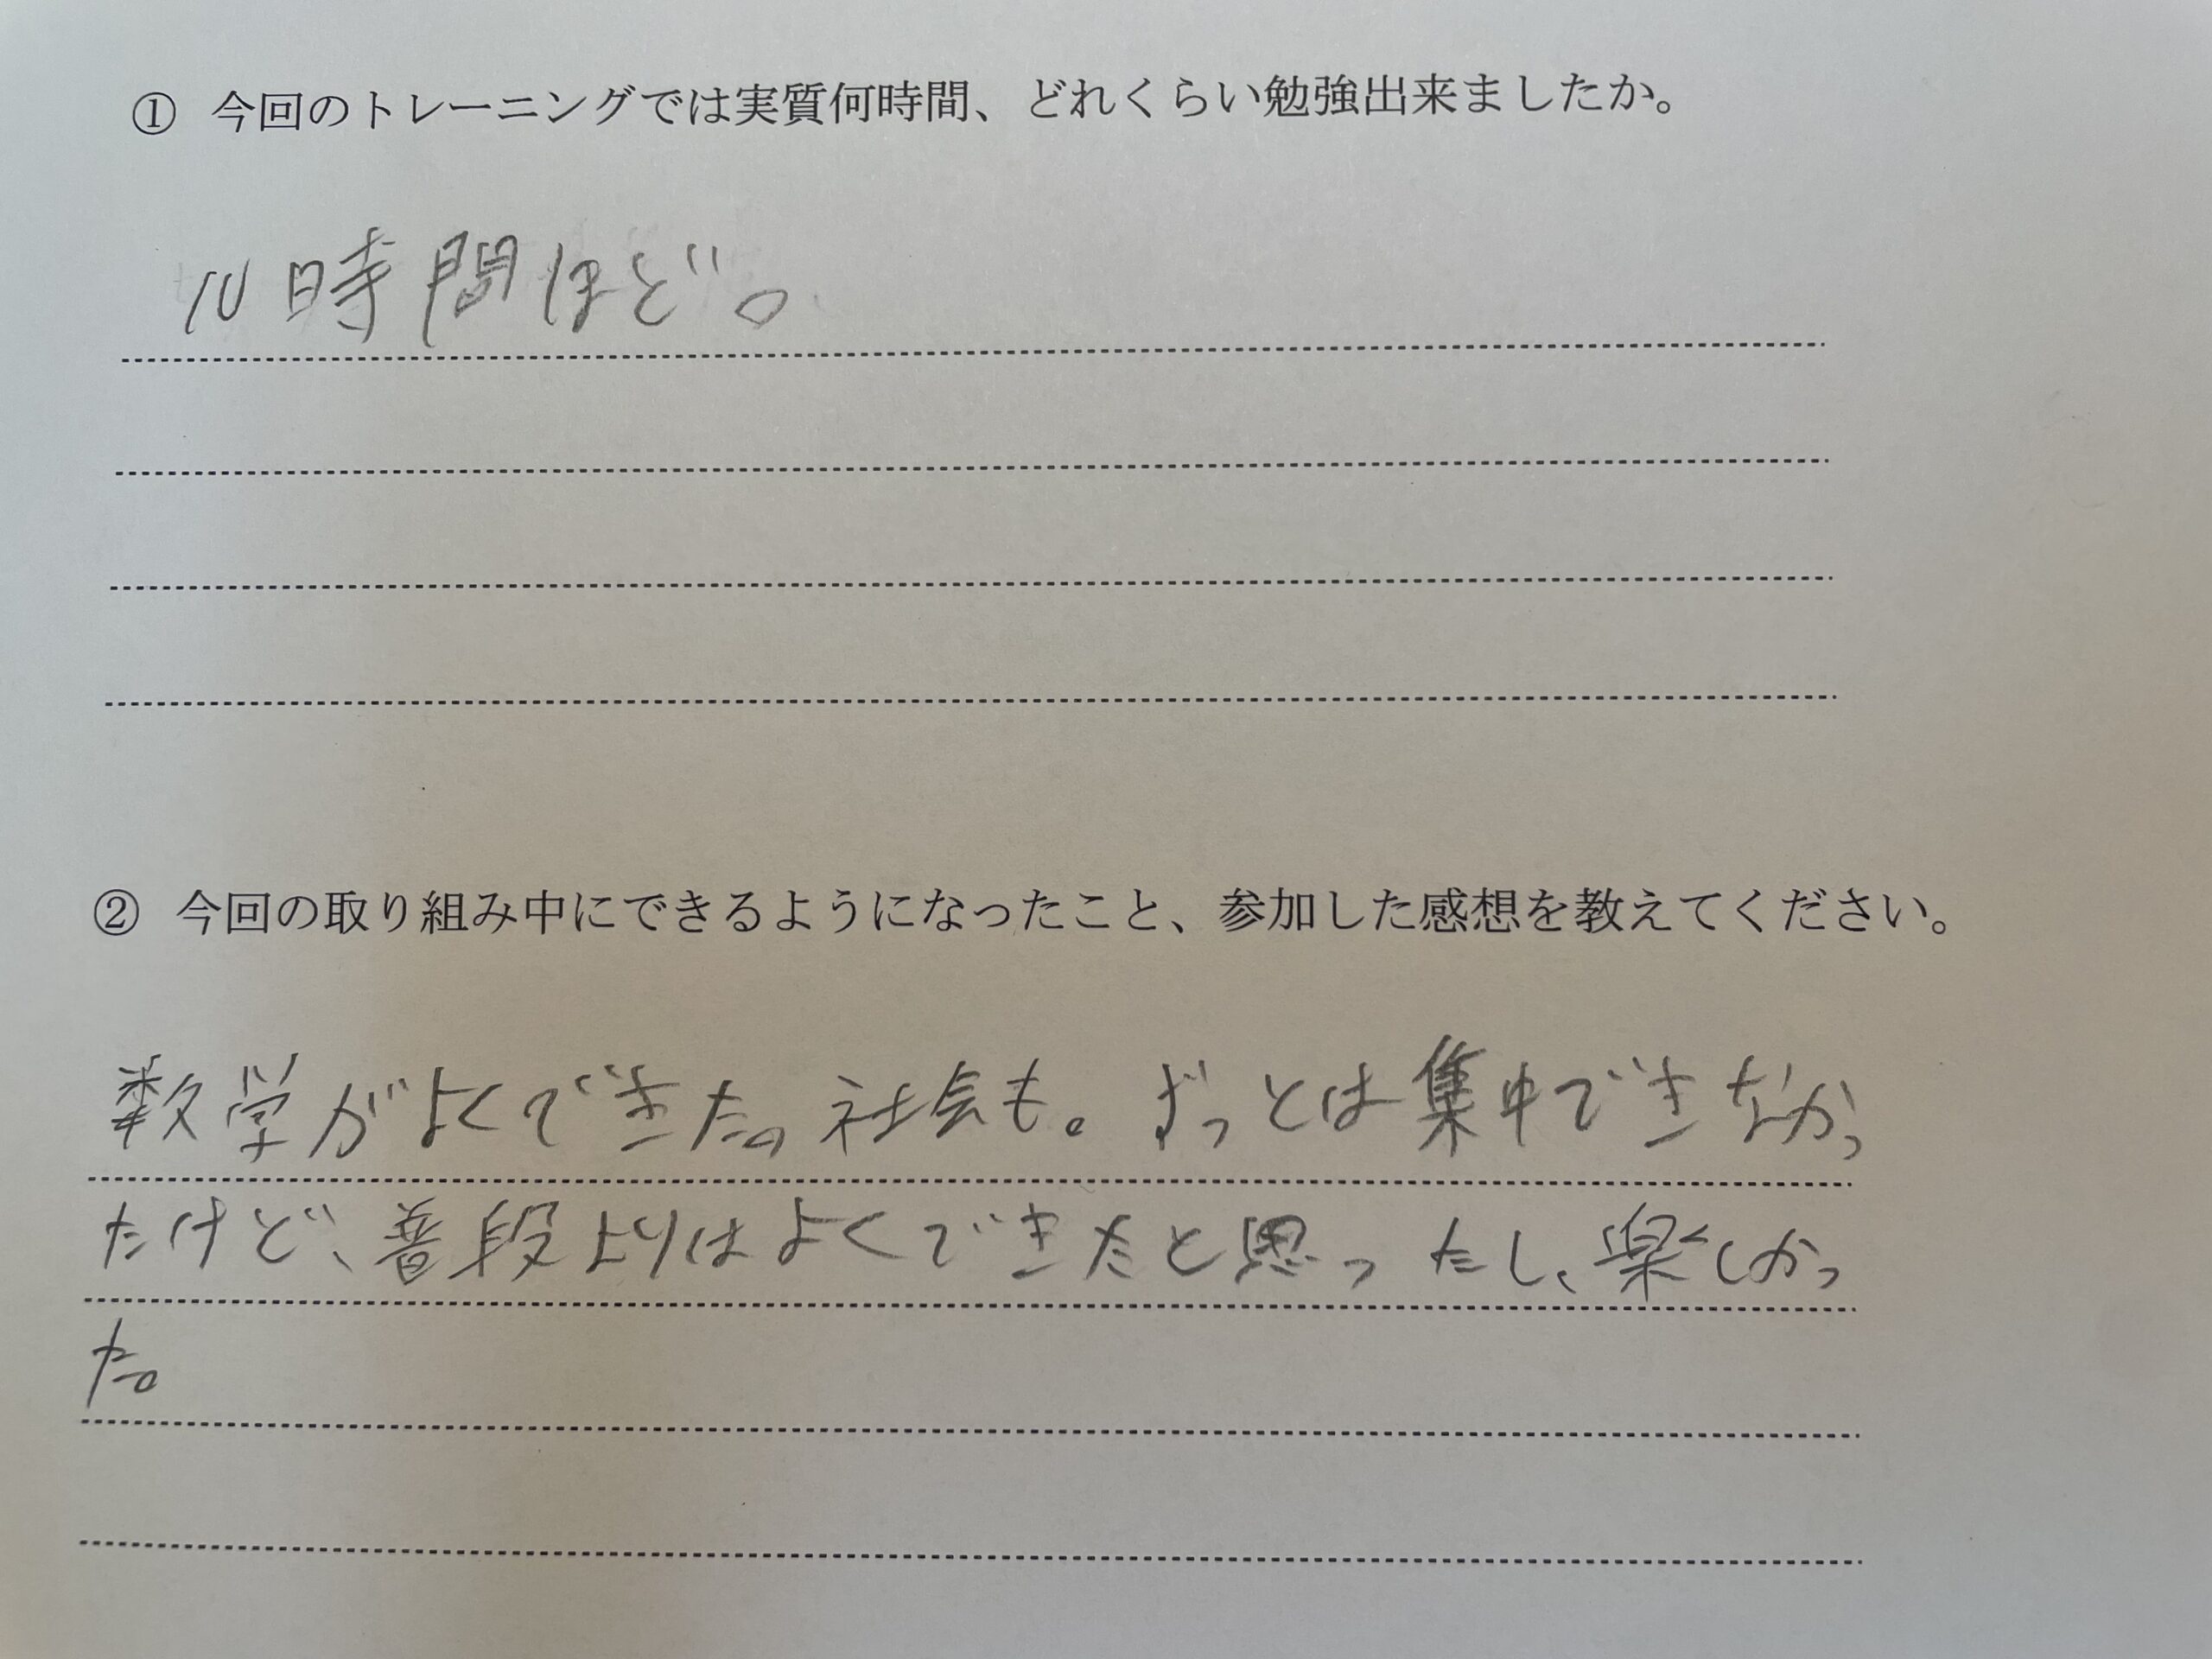 ① 今回のトレーニングでは実質何時間、どれくらい勉強出来ましたか。
10時間ほど。
② 今回の取り組み中にできるようになったこと、参加した感想を教えてください。
数学がよくできた。社会も。ずっとは集中できなかっ
たけど、普段よりはよくできたと思ったし、楽しかっ
た。